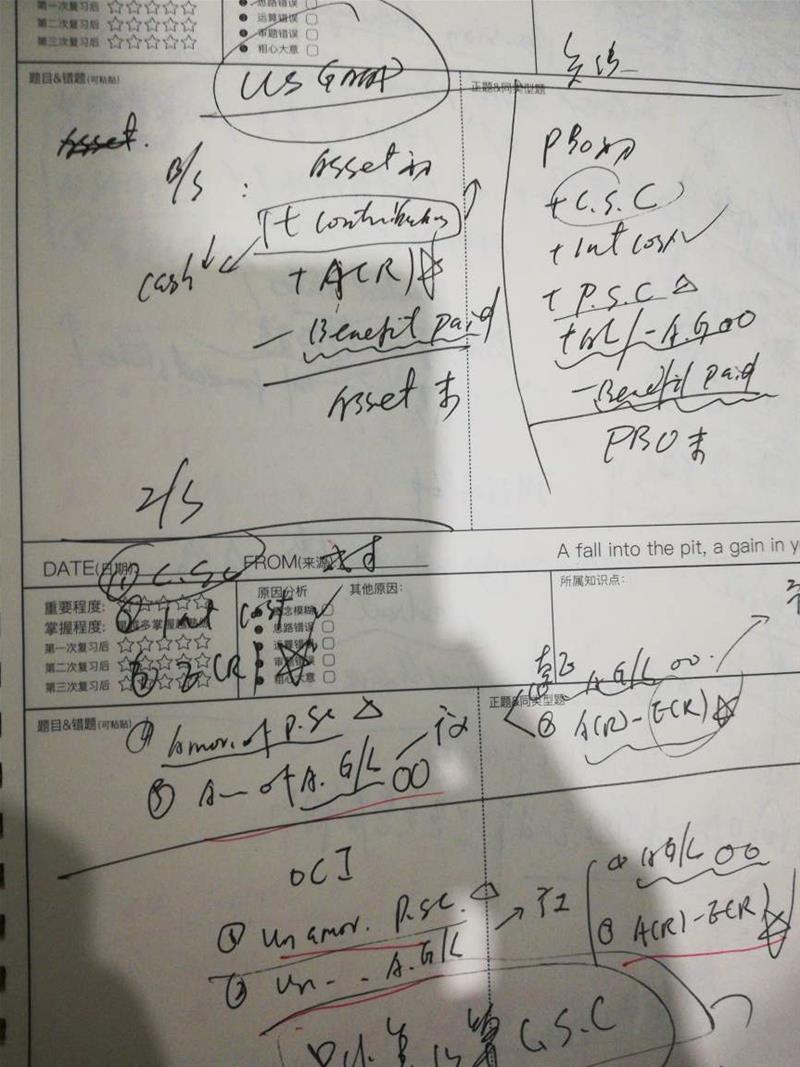 第一次复习后 ☆☆☆☆☆
第二次复习后 ☆☆☆☆☆
第三次复习后 ☆☆☆☆☆
思路错误
运算错误
审题错误
粗心大意
题目&错题(可粘贴)
US GAAP
正题&同类型题
Asset.
B/S : Asset 初
+ contribution
cash ↓
+ A(R) ☆
- Benefit paid
Asset 末
PBO 初
+ C.S.C
+ Int cost ✓
+ P.S.C △
+ AL/-A.G OO
- Benefit paid
PBO 末
I/S
DATE(日期)
FROM(来源)
A fall into the pit, a gain in y
① C.S.C
重要程度:
掌握程度:
第一次复习后 ☆☆☆☆☆
第二次复习后
第三次复习后
原因分析
念模糊
思路错误
运算错误
审题错误
粗心大意
其他原因:
所属知识点:
② Int cost ✓
③ E(R) ☆
题目&错题(可粘贴)
正题&同类型题
④ Amor. of P.SC △
⑤ A— of A. G/L OO
A G/L OO
② A(R) - E(R) ☆
OCI
① Unamor. P.SC. △
② Un-- A.G/L
① AG/L OO
② A(R) - E(R) ☆
C.S.C